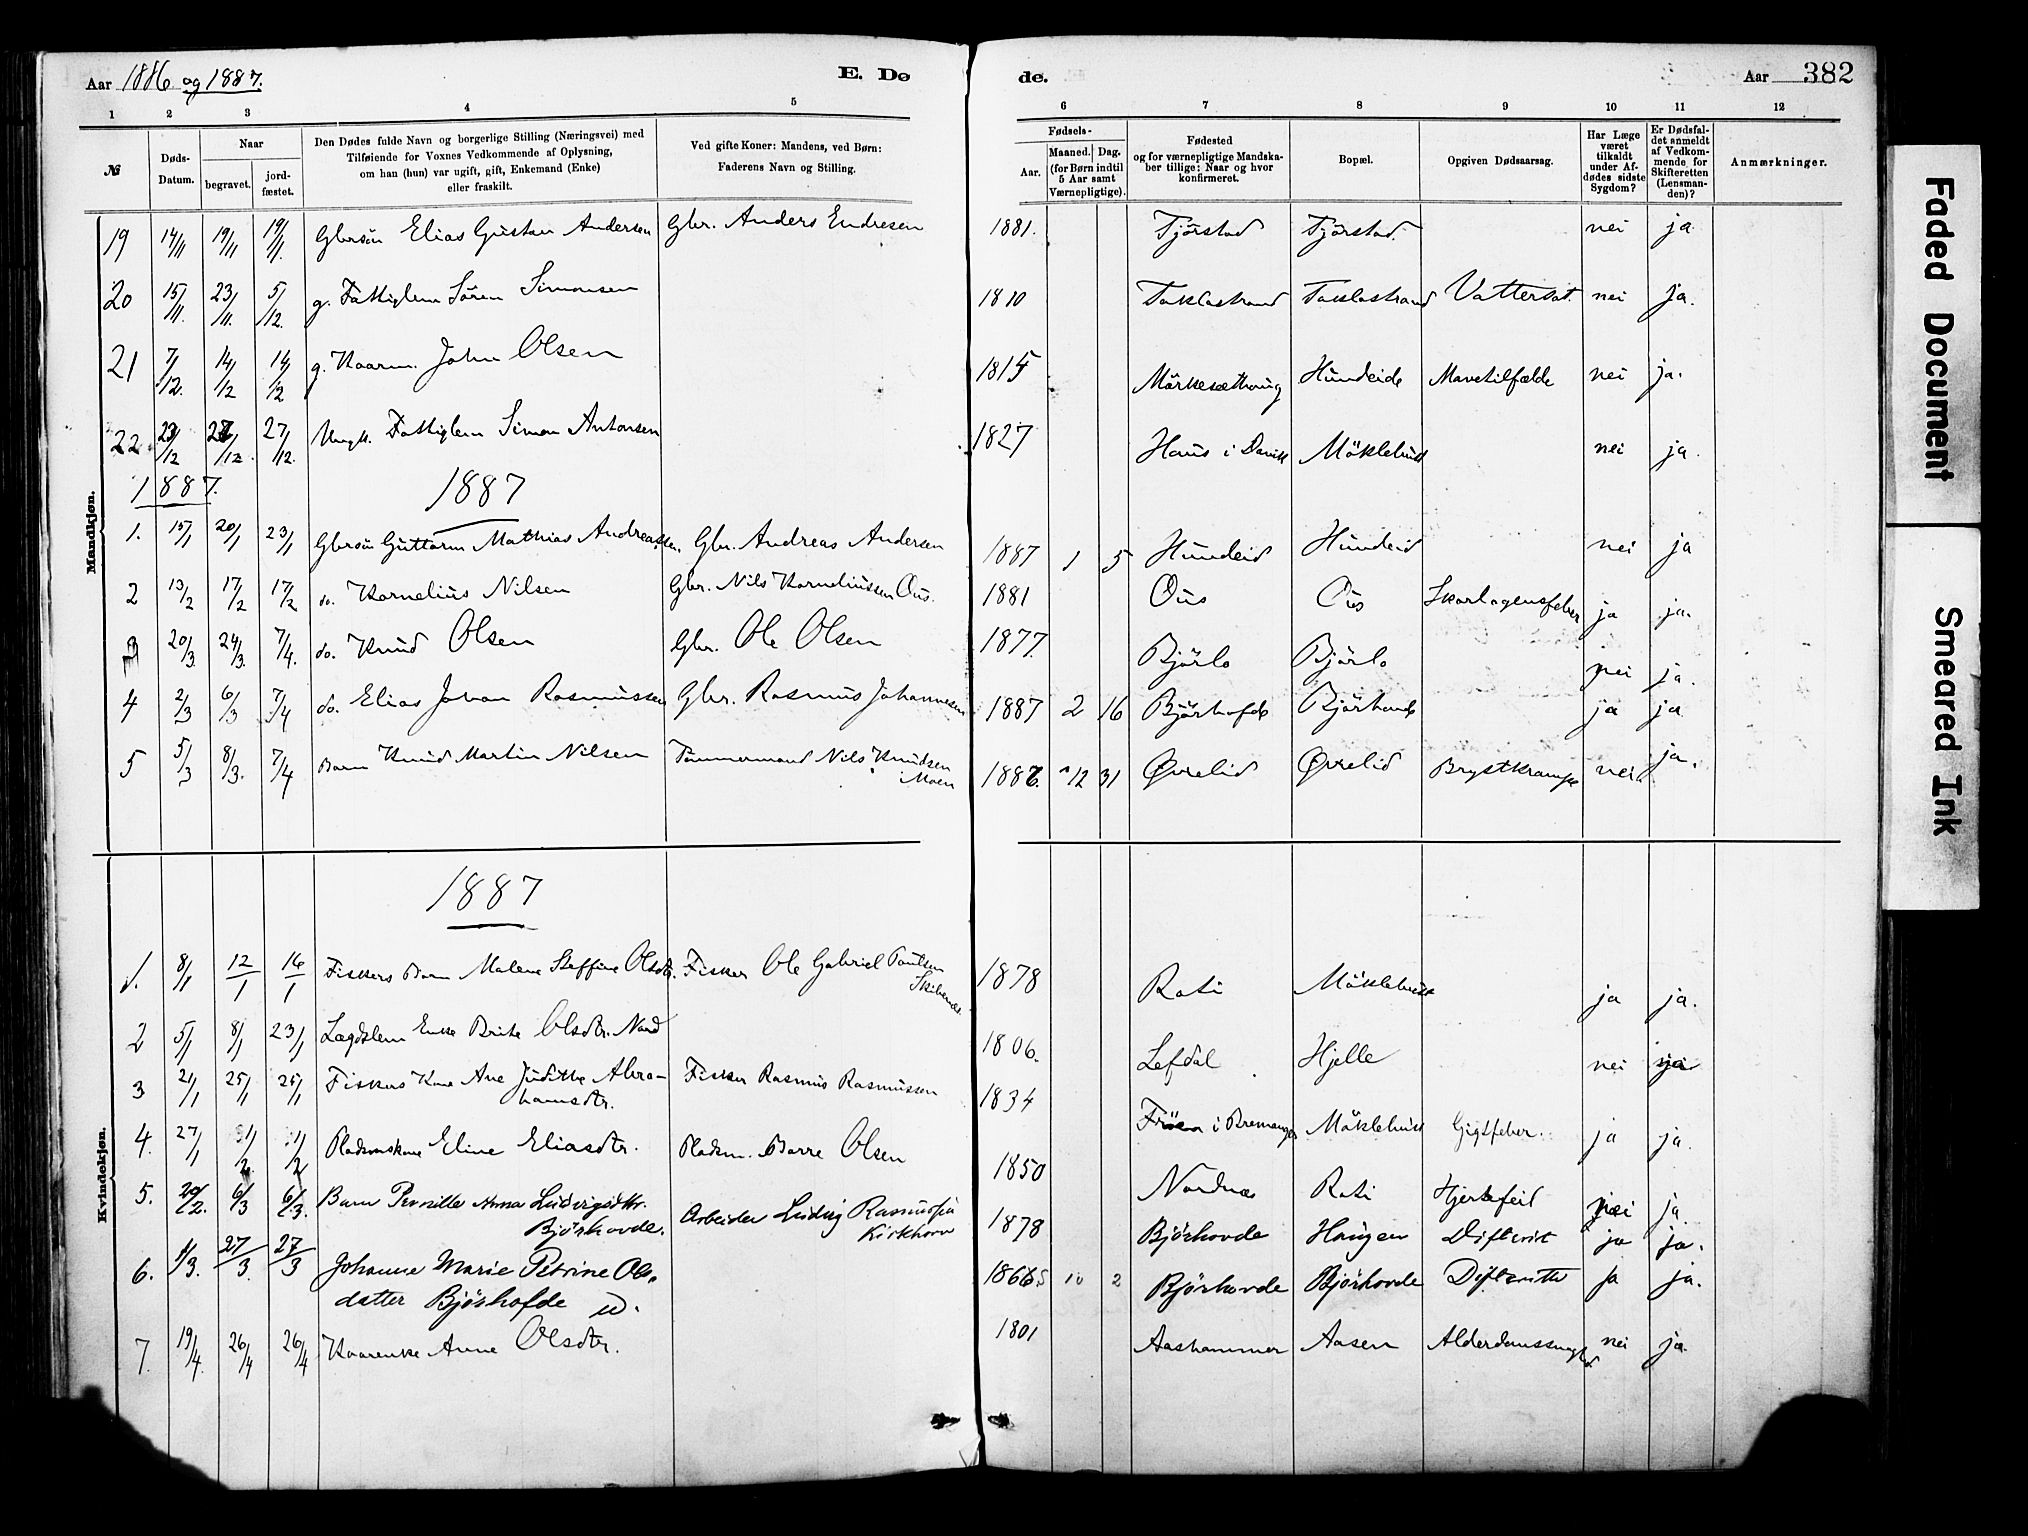 Aar 1886 og 1887.
E. Dø
de.
Aar 382
1 2 3 4 5 6 7 8 9 10 11 12
№
Døds-Datum.
Naar
begravet.
jord-fæstet.
Den Dødes fulde Navn og borgerlige Stilling (Næringsvei) med
Tilføiende for Voxnes Vedkommende af Oplysning,
om han (hun) var ugift, gift, Enkemand (Enke)
eller fraskilt.
Ved gifte Koner: Mandens, ved Børn:
Faderens Navn og Stilling.
Fødsels-
Aar.
Maaned. Dag.
(for Børn indtil
5 Aar samt
Værnepligtige).
Fødested
og for værnepligtige Mandska-
ber tillige: Naar og hvor
konfirmeret.
Bopæl.
Opgiven Dødsaarsag.
Har Læge
været
tilkaldt
under Af-
dødes sidste
Sygdom?
Er Dødsfal-
det anmeldt
af Vedkom-
mende for
Skifteretten
(Lensman-
den)?
Anmærkninger.
Mandkjøn.
19 14/11 19/11 19/11 Gbrsön Elias Gustav Andersen Gbr. Anders Endresen 1881. Tjörstad Tjörstad. nei ja
20 15/11. 23/11. 5/12. g. Fattiglem Sören Simonsen 1810 Taklostrand Taklostrand Vattersot. nei ja.
21 7/12. 14/12 14/12 g. Kaarm. John Olsen 1815 Hundeide Mavetilfælde nei ja.
22 /12 /12. 27/12. Ungk. Fattiglem Simon Antonsen 1827 Haus i Davik Möklebust nei ja.
1887. 1887
1. 15/1 20/1 23/1 Gbrsön Guttorm Mathias Andreassen. Gbr. Andreas Andersen 1887 1 5 Hundeid Hundeid nei ja
2 13/2 17/2 17/2 do. Kornelius Nilsen Gbr. Nils Korneliussen Ous. 1881 Ous Ous Skarlagensfeber ja ja.
3 20/3 24/3. 7/4. do. Knud Olsen Gbr. Ole Olsen 1877. Bjørlo Bjørlo nei ja.
4 2/3 6/3 7/4 do. Elias Johan Rasmussen Gbr. Rasmus Johannesen 1887 2 16 Bjørhofde Bjørhovde ja ja
5 5/3 8/3. 7/4 Barn Knud Martin Nilsen Tömmermand Nils Knudsen
Moen 1886. 12 31 Øvrelid Øvrelid Brystkrampe nei ja.
1887
Kvindekjøn.
1. 8/1 12/1 16/1 Fiskers Barn Malene Steffine Olsdtr. Fisker Ole Gabriel Paulsen
1878 Rosti Möklebust ja ja.
2 5/1 8/1 23/1 Lægdslem Enke Brite Olsdtr. Nord 1806. Lefdal Hjelle nei ja
3 21/1 25/1 25/1 Fiskers Kone Ane Judithe Abra-
hamsdtr. Fisker Rasmus Rasmussen 1834 i Bremanger Möklebust Gigtfeber. ja ja.
4. 27/1 /2. /2 Pladsmskone Eline Eliasdtr. Pladsm. Børre Olsen 1850 Nordnæs Rosti Hjertefeil nei ja.
5. 20/2. 6/3 6/3. Barn Pernille Anna Ludvigsdtr.
Bjørhovde. Arbeider Ludvig Rasmussen
Kirkhorn 1878 Bjørhovde Haugen Difterit ja ja.
6. /3. 27/3. 27/3 Johanne Marie Petrine Ols-
datter Bjørhofde u. 10 2 Bjørhovde Bjørhovde Difteritis ja ja.
7. 19/4. 26/4 26/4 Kaarenke Anne Olsdtr. 1801 Aashammer Aasen Alderdomssvaghed nei ja.
Faded Document
Smeared Ink